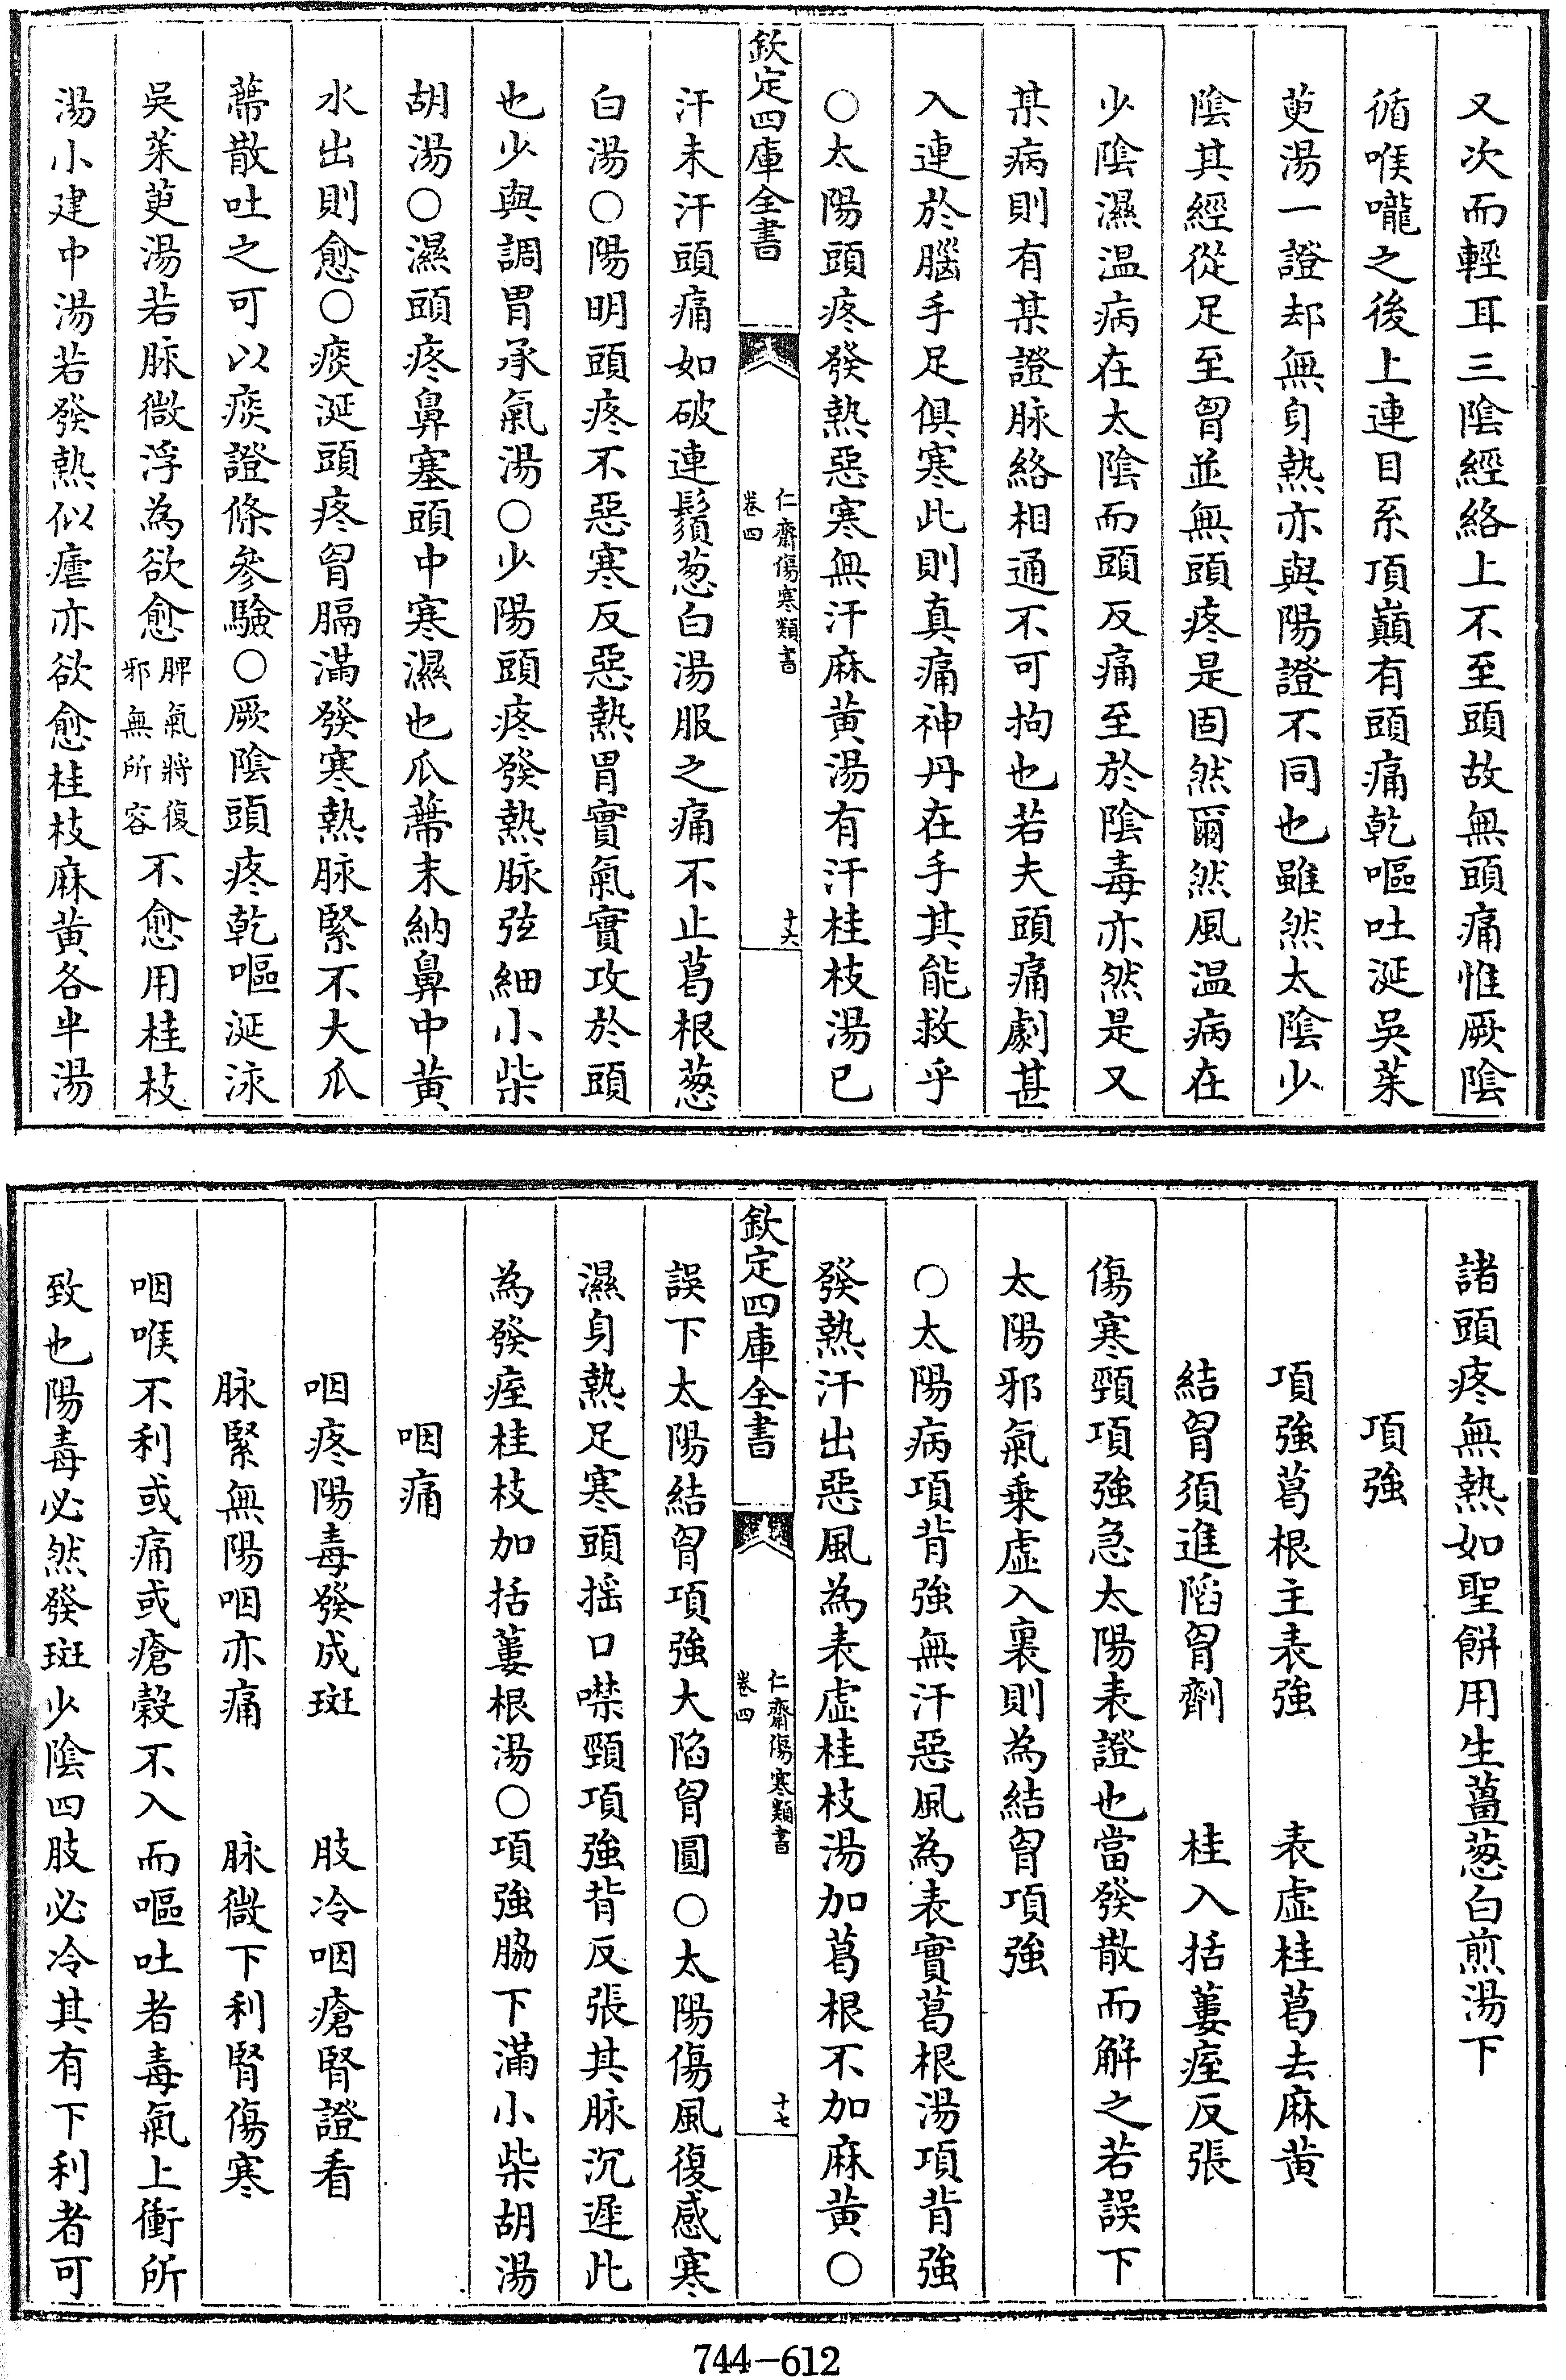 又次而輕耳三陰經絡上不至頭故無頭痛惟厥陰
循喉嚨之後上連目系頂巔有頭痛乾嘔吐涎吳茱
萸湯一證却無身熱亦與陽證不同也雖然太陰少
陰其經從足至胷並無頭疼是固然爾然風温病在
少陰濕温病在太陰而頭反痛至於陰毒亦然是又
某病則有某證脉絡相通不可拘也若夫頭痛劇甚
入連於腦手足俱寒此則真痛神丹在手其能救乎
○太陽頭疼發熱惡寒無汗麻黄湯有汗桂枝湯已
欽定四庫全書
仁齋傷寒類書
卷四
十六
汗未汗頭痛如破連鬚葱白湯服之痛不止葛根葱
白湯○陽明頭疼不惡寒反惡熱胃實氣實攻於頭
也少與調胃承氣湯○少陽頭疼發熱脉弦細小柴
胡湯○濕頭疼鼻塞頭中寒濕也瓜蔕末納鼻中黄
水出則愈○痰涎頭疼胷膈滿發寒熱脉緊不大瓜
蔕散吐之可以痰證條參驗○厥陰頭疼乾嘔涎沫
吳茱萸湯若脉微浮為欲愈脾氣將復邪無所容不愈用桂枝
湯小建中湯若發熱似瘧亦欲愈桂枝麻黄各半湯
諸頭疼無熱如聖餅用生薑葱白煎湯下
項強
項強葛根主表強 表虚桂葛去麻黄
結胷須進陷胷劑 桂入括蔞痓反張
傷寒頸項強急太陽表證也當發散而解之若誤下
太陽邪氣乗虚入裏則為結胷項強
○太陽病項背強無汗惡風為表實葛根湯項背強
發熱汗出惡風為表虚桂枝湯加葛根不加麻黄○
欽定四庫全書
仁齋傷寒類書
卷四
十七
誤下太陽結胷項強大陷胷圓○太陽傷風復感寒
濕身熱足寒頭摇口噤頸項強背反張其脉沉遲此
為發痓桂枝加括蔞根湯○項強脇下滿小柴胡湯
咽痛
咽疼陽毒發成斑 肢冷咽瘡腎證看
脉緊無陽咽亦痛 脉微下利腎傷寒
咽喉不利或痛或瘡穀不入而嘔吐者毒氣上衝所
致也陽毒必然發斑少陰四肢必冷其有下利者可
744-612